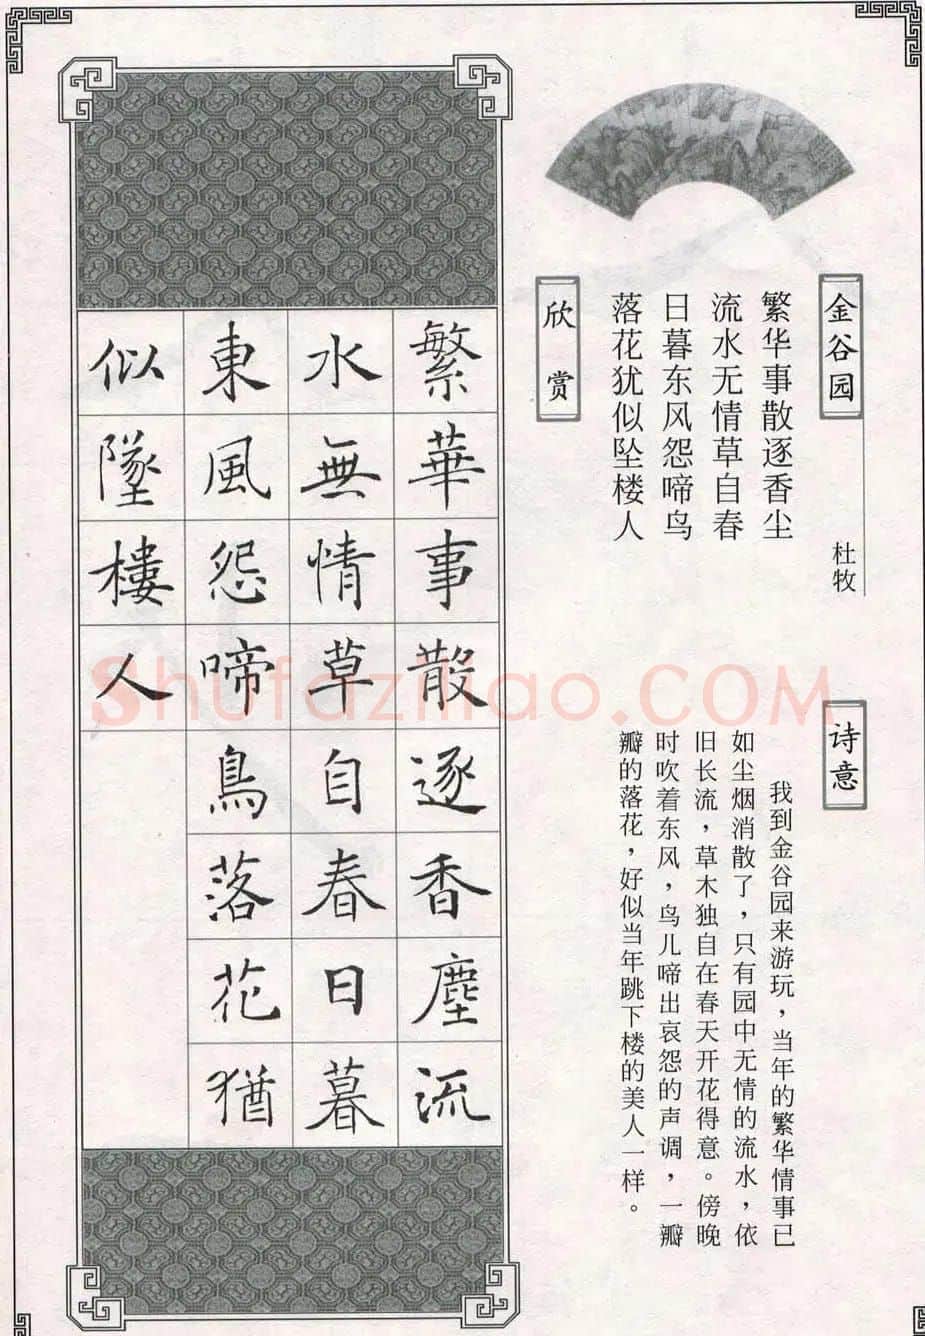 金谷园
杜牧
繁华事散逐香尘
流水无情草自春
日暮东风怨啼鸟
落花犹似坠楼人
诗意
我到金谷园来游玩，当年的繁华情事已
如尘烟消散了，只有园中无情的流水，依
旧长流，草木独自在春天开花得意。傍晚
时吹着东风，鸟儿啼出哀怨的声调，一瓣
瓣的落花，好似当年跳下楼的美人一样。
欣赏
繁華事散逐香塵流
水無情草自春日暮
東風怨啼鳥落花猶
似墜樓人
Shufaziliao.COM